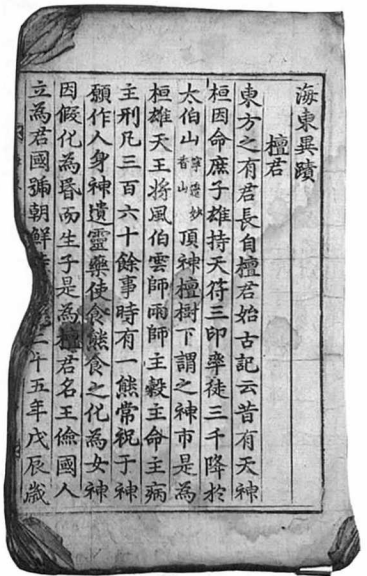 海東異蹟
檀君
東方之有君長自檀君始古記云昔有天神
桓因命庶子雄持天符三印率徒三千降於
太伯山寧邊妙香山頂神檀樹下謂之神市是為
桓雄天王将風伯雲師雨師主穀主命主病
主刑凡三百六十餘事時有一熊常祝于神
願作人身神遺靈藥使食熊食之化為女神
因假化為昏而生子是為檀君名王儉國人
立為君國號朝鮮二十五年戊辰歲